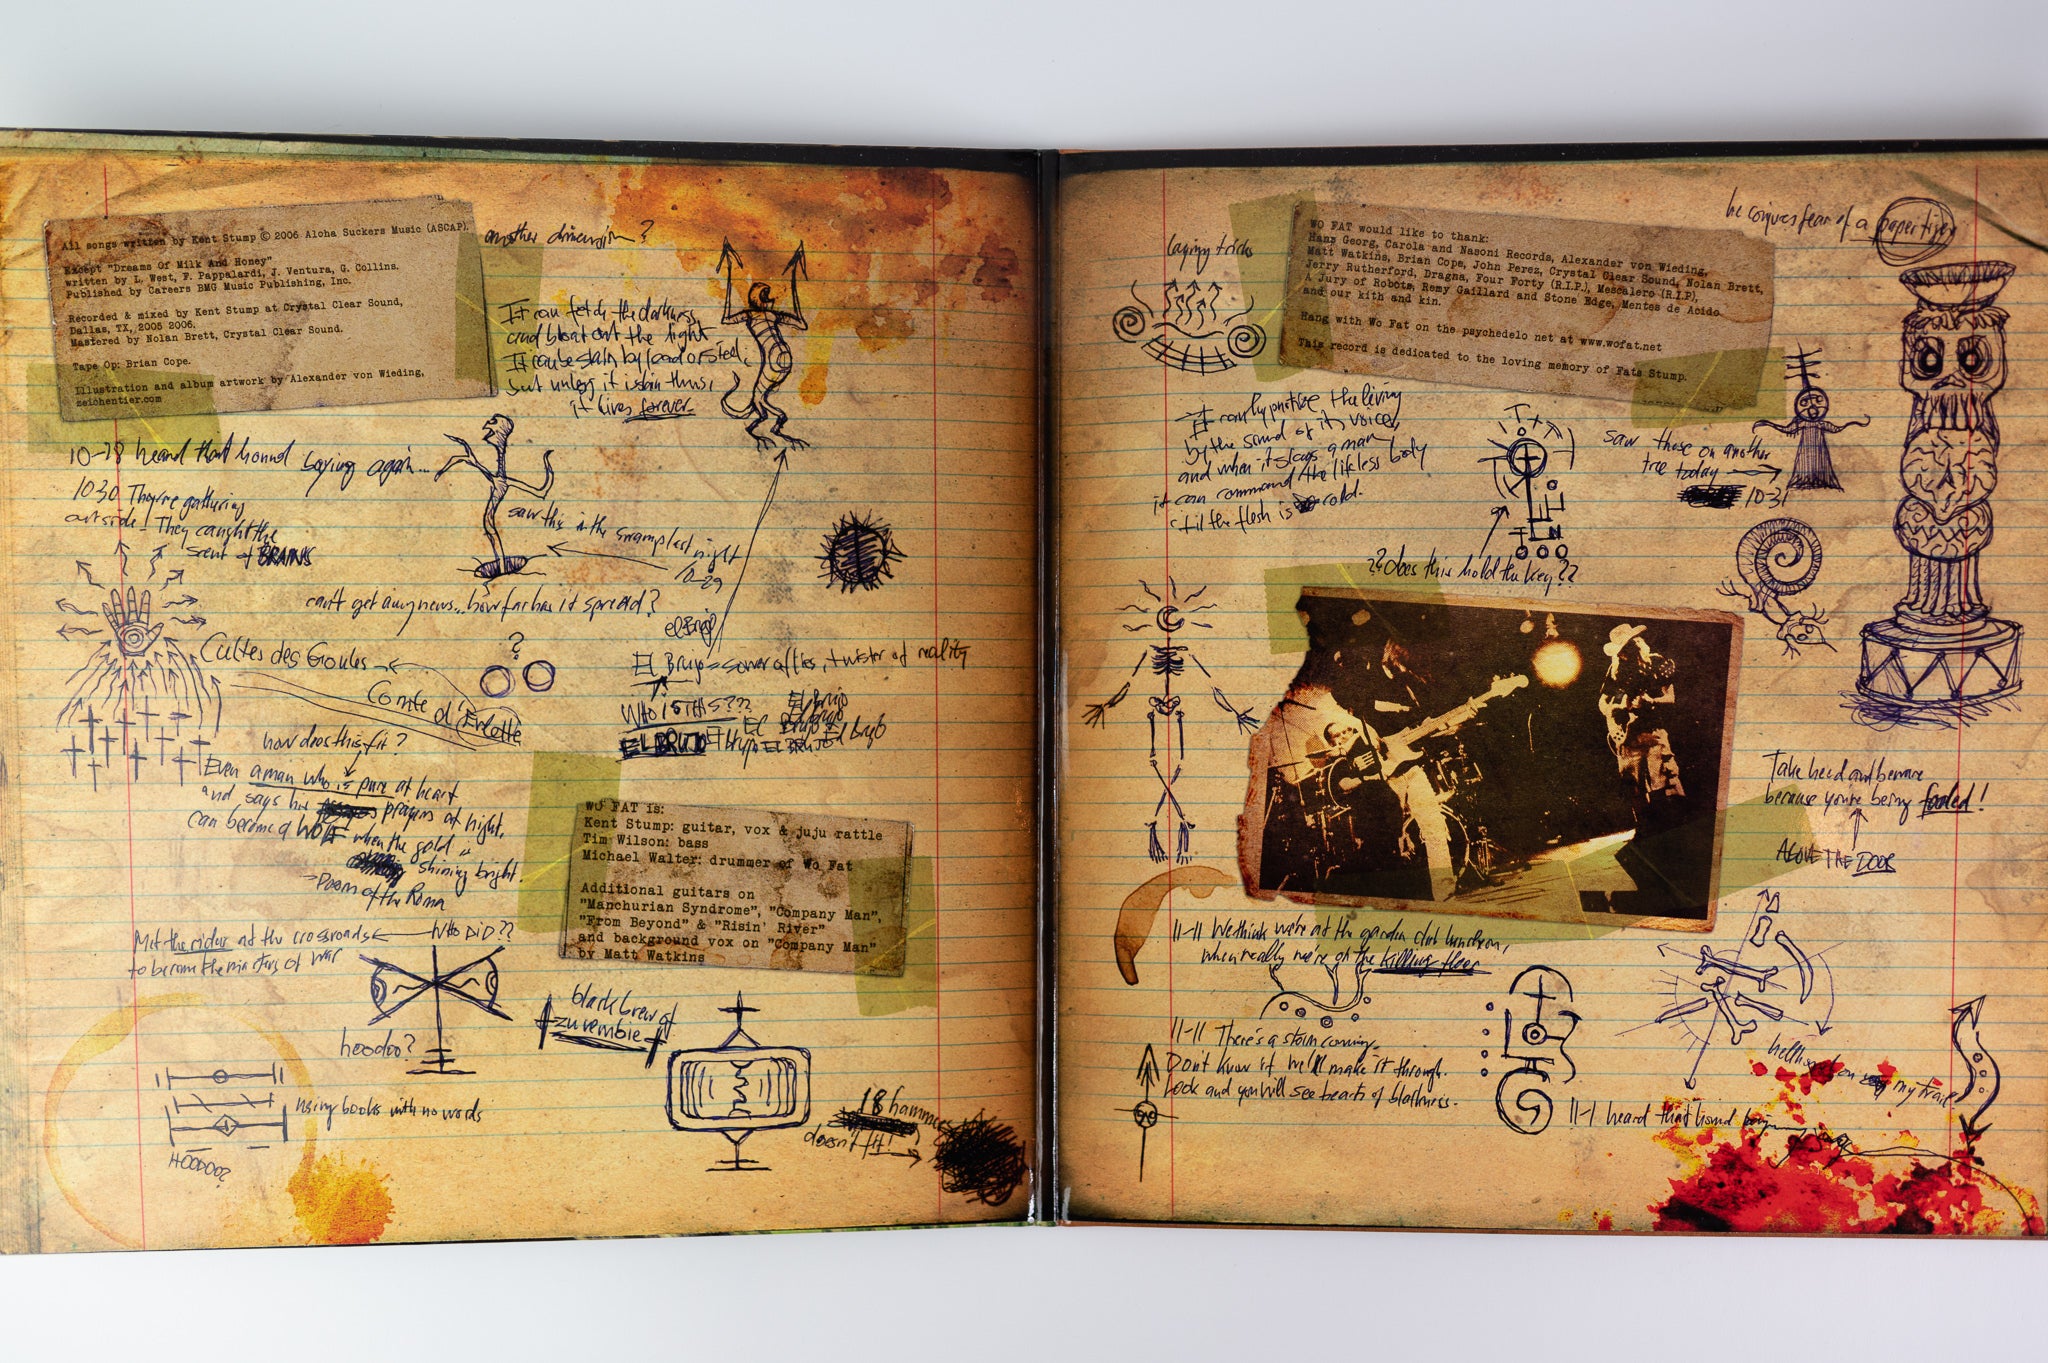 All songs written by Kent Stump © 2006 Aloha Suckers Music (ASCAP).
Except "Dreams Of Milk And Honey"
written by L. West, F. Pappalardi, J. Ventura, G. Collins.
Published by Careers BMG Music Publishing, Inc.
Recorded & mixed by Kent Stump at Crystal Clear Sound,
Dallas, TX, 2005 2006.
Mastered by Nolan Brett, Crystal Clear Sound.
Tape Op: Brian Cope.
Illustration and album artwork by Alexander von Wieding,
zeichentier.com
another dimension?
It can fetch the darkness
and blot out the light
It can be slain by lead or steel,
but unless it is slain thus,
it lives forever
10-28 heard that hound baying again...
10 30 They're gathering
outside - They caught the
scent of BRAINS
saw this in the swamp last night
10-29
can't get any news... how far has it spread?
?
el Brujo
El Brujo = sower of lies, twister of reality
WHO IS THIS???
El Brujo
El Brujo
EL BRUJO El Brujo El Brujo El Brujo
Cultes des Goules
Comte d'Erlette
how does this fit?
Even a man who is pure at heart
and says his prayers at night,
can become a WOLF when the gold
shining bright.
- Poem of the Roma
Met the rider at the crossroads
WHO DID??
to become the masters of war
hoodoo?
using books with no words
HOODOO?
WO FAT is:
Kent Stump: guitar, vox & juju rattle
Tim Wilson: bass
Michael Walter: drummer of Wo Fat
Additional guitars on
"Manchurian Syndrome", "Company Man",
"From Beyond" & "Risin' River"
and background vox on "Company Man"
by Matt Watkins
black brew of
zuvembie
18 hammers
doesn't fit!
laying tricks
WO FAT would like to thank:
Hans Georg, Carola and Nasoni Records, Alexander von Wieding,
Matt Watkins, Brian Cope, John Perez, Crystal Clear Sound, Nolan Brett,
Jerry Rutherford, Dragna, Four Forty (R.I.P.), Mescalero (R.I.P),
A Jury of Robots, Remy Gaillard and Stone Edge, Mentes de Acido
and our kith and kin.
Hang with Wo Fat on the psychedelo net at www.wofat.net
This record is dedicated to the loving memory of Fats Stump.
he conjures fear of a paper tiger
It can hypnotize the living
by the sound of its voice,
and when it slays a man
it can command the lifeless body
'til the flesh is cold.
saw these on another
tree today
10-31
??does this hold the key??
Take heed and beware
because you're being fooled!
ABOVE THE DOOR
11-11 We think we're at the garden club luncheon,
when really we're on the killing floor
11-11 There's a storm coming.
Don't know if we'll make it through.
Look and you will see hearts of blackness.
hellhound on my trail
11-1 heard that hound baying